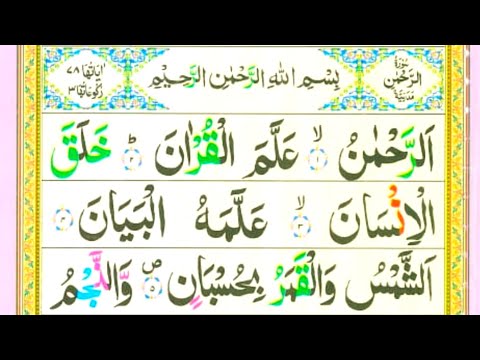 سُورَةُ الرَّحْمٰنِ مَدَنِيَّةٌ
بِسْمِ اللهِ الرَّحْمٰنِ الرَّحِيْمِ
اٰيَاتُهَا ٧٨
رُكُوْعَاتُهَا ٣
اَلرَّحْمٰنُ ۙ﴿١﴾ عَلَّمَ الْقُرْاٰنَ ؕ﴿٢﴾ خَلَقَ
الْاِنْسَانَ ۙ﴿٣﴾ عَلَّمَهُ الْبَيَانَ ﴿٤﴾
اَلشَّمْسُ وَالْقَمَرُ بِحُسْبَانٍ ۪ۙ﴿٥﴾ وَّالنَّجْمُ